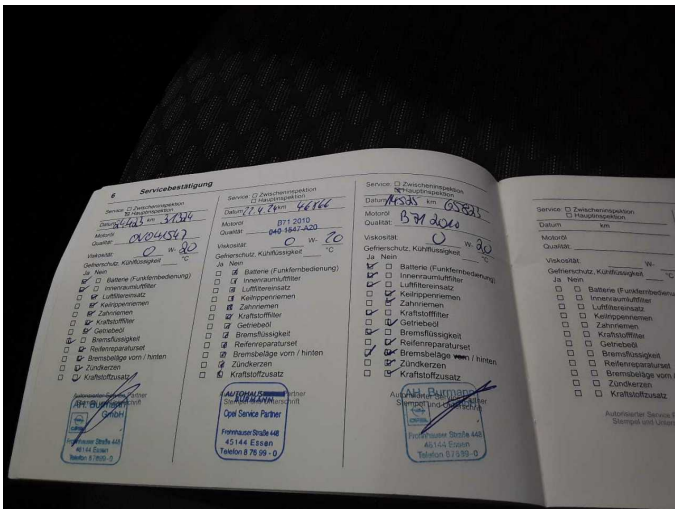 6 Servicebestätigung
Service: Zwischeninspektion
Hauptinspektion
Datum km 31324
Motoröl
Qualität: OV0401547
Viskosität: 0 W- 20
Gefrierschutz, Kühlflüssigkeit °C
Ja Nein
Batterie (Funkfernbedienung)
Innenraumluftfilter
Luftfiltereinsatz
Keilrippenriemen
Zahnriemen
Kraftstofffilter
Getriebeöl
Bremsflüssigkeit
Reifenreparaturset
Bremsbeläge vorn / hinten
Zündkerzen
Kraftstoffzusatz
Autorisierter Service Partner
AH. Burmann
GmbH
OPEL
Fronhauser Straße 448
45144 Essen
Telefon 8 7699 - 0
Service: Zwischeninspektion
Hauptinspektion
Datum 22.4.24 km 46466
Motoröl B71 2010
Qualität: 040 1547-A20
Viskosität: 0 W- 20
Gefrierschutz, Kühlflüssigkeit °C
Ja Nein
Batterie (Funkfernbedienung)
Innenraumluftfilter
Luftfiltereinsatz
Keilrippenriemen
Zahnriemen
Kraftstofffilter
Getriebeöl
Bremsflüssigkeit
Reifenreparaturset
Bremsbeläge vorn / hinten
Zündkerzen
Kraftstoffzusatz
AUTOHAUS
Opel Service Partner
Frohnhauser Straße 448
45144 Essen
Telefon 8 76 99 - 0
Service: Zwischeninspektion
Hauptinspektion
Datum km
Motoröl
Qualität: B71 2010
Viskosität: 0 W- 20
Gefrierschutz, Kühlflüssigkeit °C
Ja Nein
Batterie (Funkfernbedienung)
Innenraumluftfilter
Luftfiltereinsatz
Keilrippenriemen
Zahnriemen
Kraftstofffilter
Getriebeöl
Bremsflüssigkeit
Reifenreparaturset
Bremsbeläge vorn / hinten
Zündkerzen
Kraftstoffzusatz
AH. Burmann
Stempel und Unterschrift
Frohnhauser Straße 448
45144 Essen
Telefon 8 76 99 - 0
Service: Zwischeninspektion
Hauptinspektion
Datum km
Motoröl
Qualität:
Viskosität: W-
Gefrierschutz, Kühlflüssigkeit
Ja Nein
Batterie (Funkfernbedienu
Innenraumluftfilter
Luftfiltereinsatz
Keilrippenriemen
Zahnriemen
Kraftstofffilter
Getriebeöl
Bremsflüssigkeit
Reifenreparaturset
Bremsbeläge vorn
Zündkerzen
Kraftstoffzusatz
Autorisierter Service
Stempel und Unter